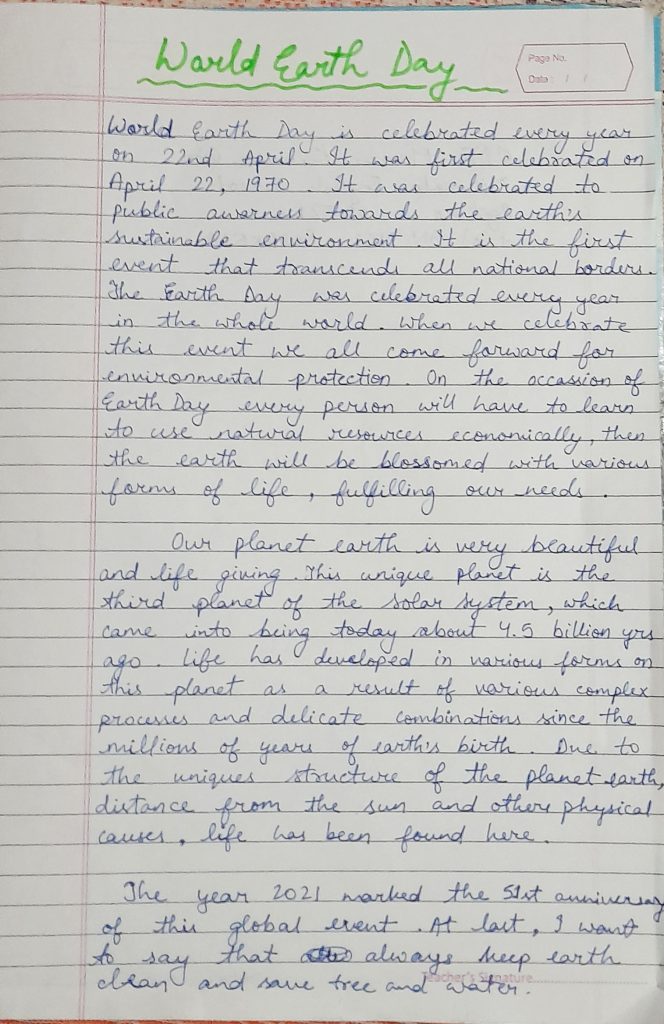 World Earth Day
Page No.
Date : / /
World Earth Day is celebrated every year
on 22nd April. It was first celebrated on
April 22, 1970. It was celebrated to
public awarness towards the earth's
sustainable environment. It is the first
event that transcends all national borders.
The Earth Day was celebrated every year
in the whole world. When we celebrate
this event we all come forward for
environmental protection. On the occassion of
Earth Day every person will have to learn
to use natural resources economically, then
the earth will be blossomed with various
forms of life, fulfilling our needs.
Our planet earth is very beautiful
and life giving. This unique planet is the
third planet of the solar system, which
came into being today about 4.5 billion yrs
ago. Life has developed in various forms on
this planet as a result of various complex
processes and delicate combinations since the
millions of years of earth's birth. Due to
the uniques structure of the planet earth,
distance from the sun and other physical
causes, life has been found here.
The year 2021 marked the 51st anniversay
of this global event. At last, I want
to say that always keep earth
clean and save tree and water.
Teacher's Signature